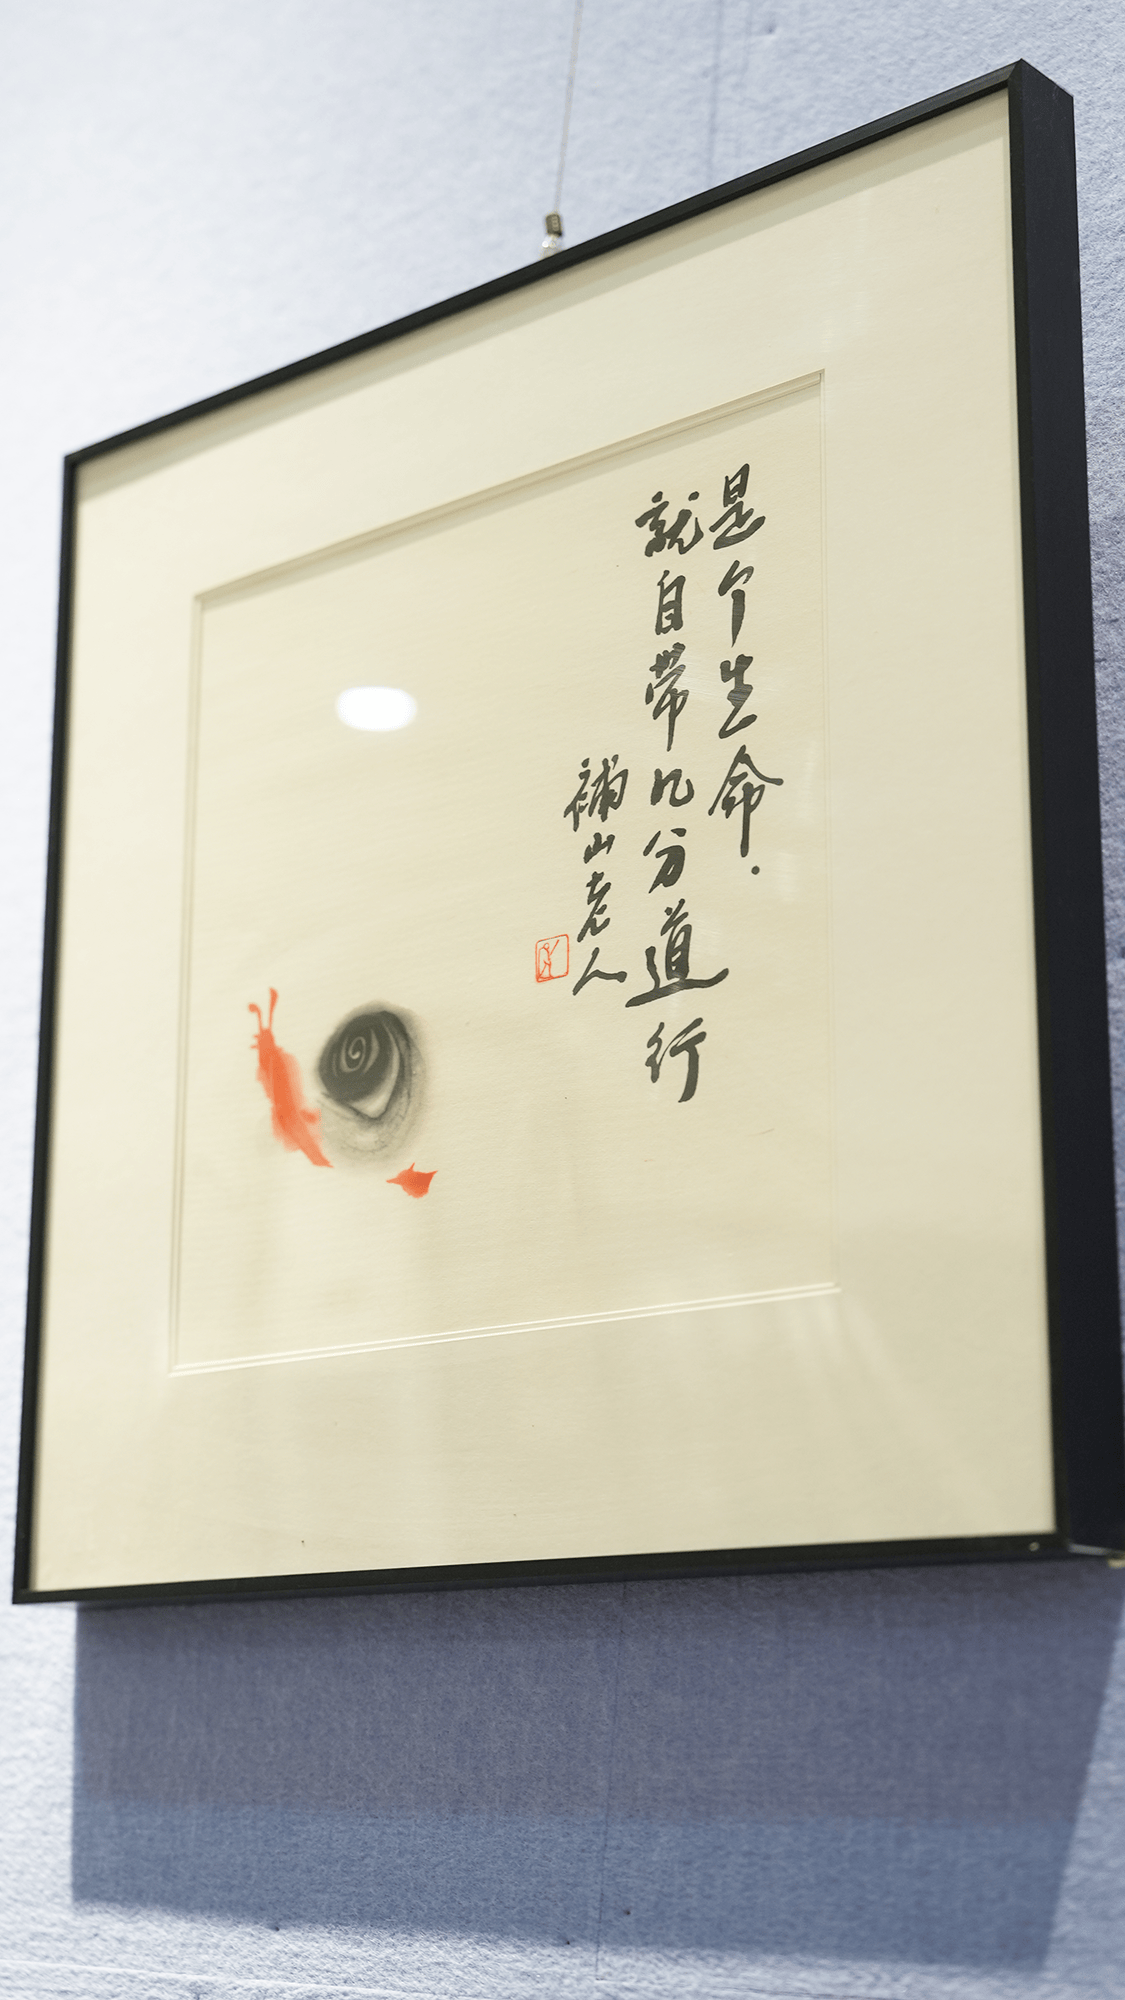 是个生命.
就自带几分道行
補山老人